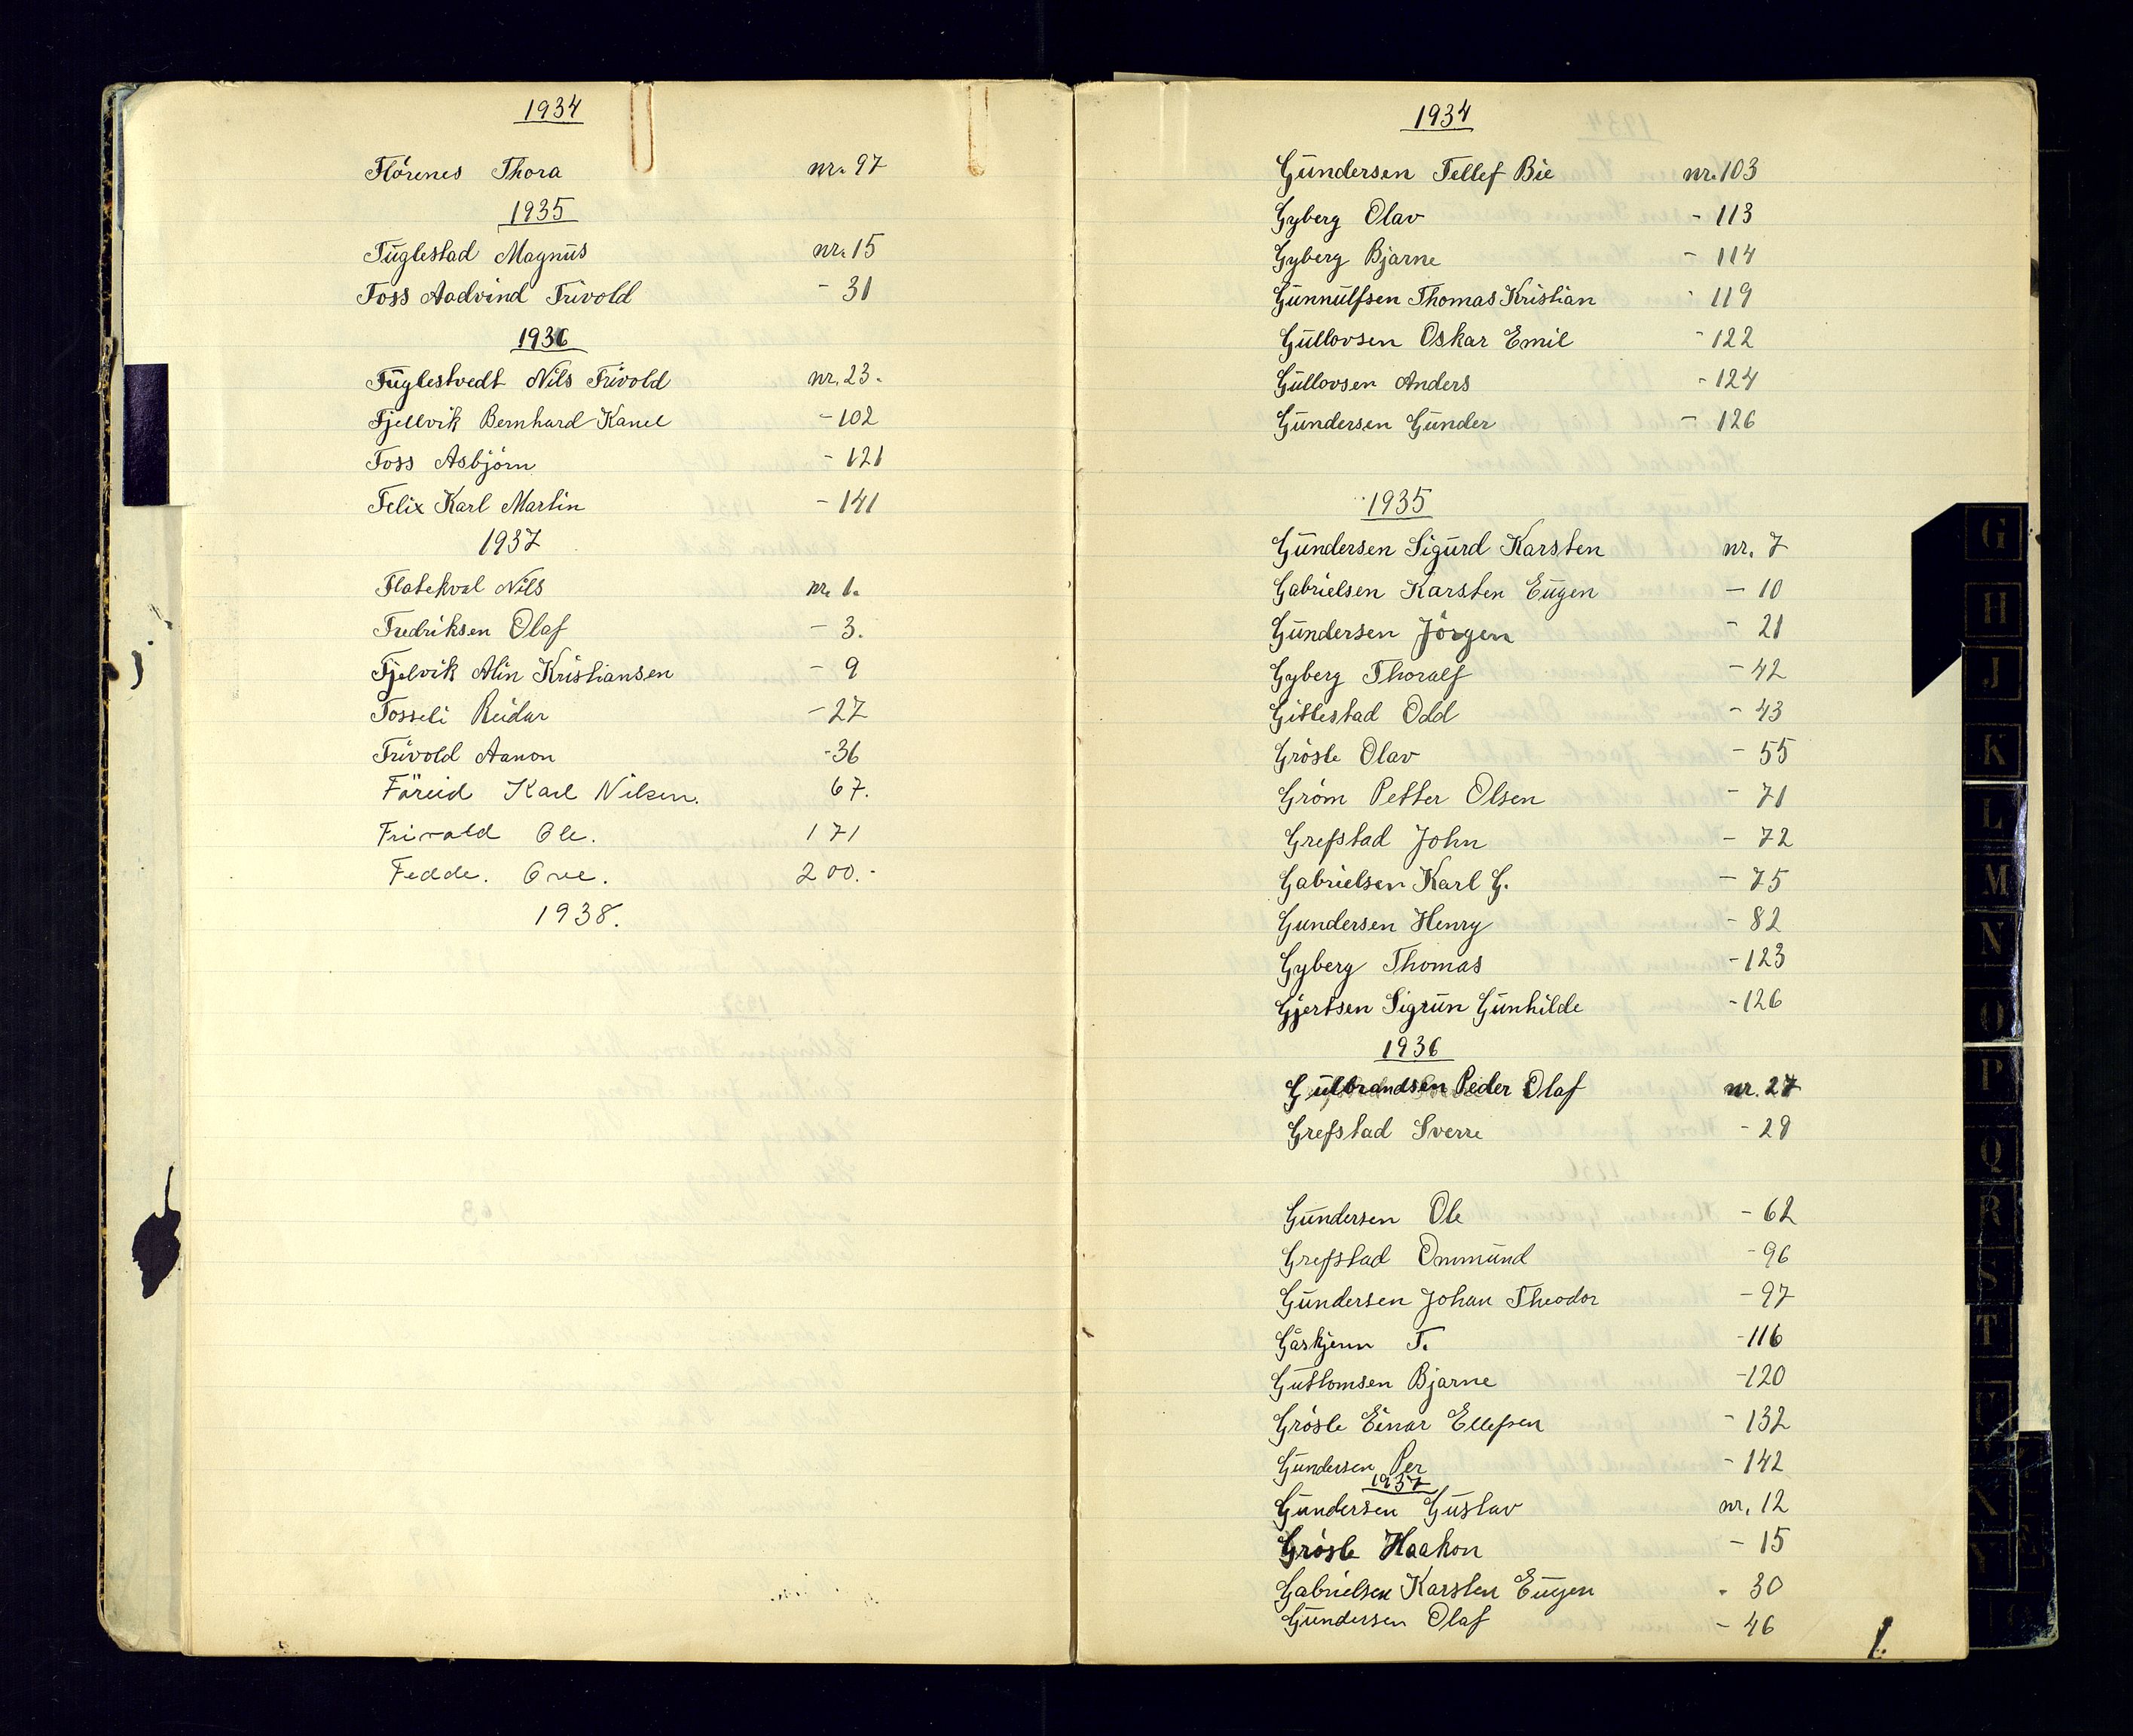 1934
Flörenes Thora nr. 97
1935
Fuglestad Magnus nr. 15
Foss Aadvind Frivold - 31
1936
Fuglestvedt Nils Frivold nr. 23.
Fjellvik Bernhard Kanel - 102
Foss Asbjörn - 121
Felix Karl Martin - 141
1937
Flatekval Nils nr. 1.
Fredriksen Olaf - 3.
Fjelvik Alin Kristiansen - 9
Fosseli Reidar - 27
Frivold Aanon - 36
Föreid Karl Nilsen. 67.
Frivold Ole. 171
Fedde. Ove. 200.-
1938.
1934
Gundersen Tellef Bie nr. 103
Gyberg Olav - 113
Gyberg Bjarne - 114
Gunnulfsen Thomas Kristian - 119
Gullovsen Oskar Emil - 122
Gullovsen Anders - 124
Gundersen Gunder - 126
1935
Gundersen Sigurd Karsten nr. 7
Gabrielsen Karsten Eugen - 10
Gundersen Jörgen - 21
Gyberg Thoralf - 42
Gittestad Odd - 43
Grösle Olav - 55
Gröm Petter Olsen - 71
Grefstad John - 72
Gabrielsen Karl G. - 75
Gundersen Henry - 82
Gyberg Thomas - 123
Gjertsen Sigrun Gunhilde - 126
1936
Gulbrandsen Peder Olaf nr. 27
Grefstad Sverre - 28
Gundersen Ole - 62
Grefstad Ommund - 96
Gundersen Johan Theodor - 97
Gaskjenn T. - 116
Guttomsen Bjarne - 120
Grösle Einar Ellefsen - 132
Gundersen Per - 142
1937
Gundersen Gustav nr. 12
Grösle Haakon - 15
Gabrielsen Karsten Eugen - 30
Gundersen Olaf - 46
G
H
J
K
L
M
N
O
P
Q
R
S
T